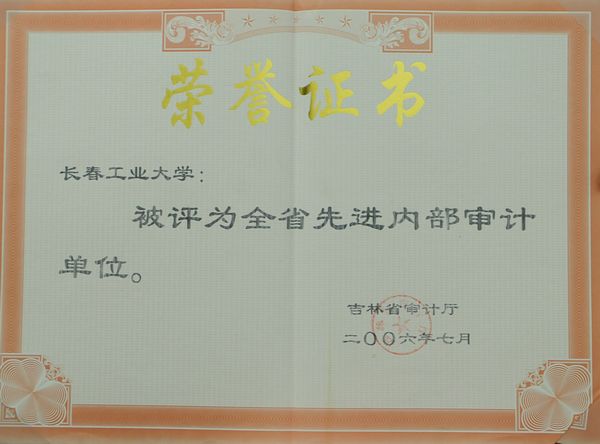 荣誉证书
长春工业大学：
被评为全省先进内部审计
单位。
吉林省审计厅
二〇〇六年七月